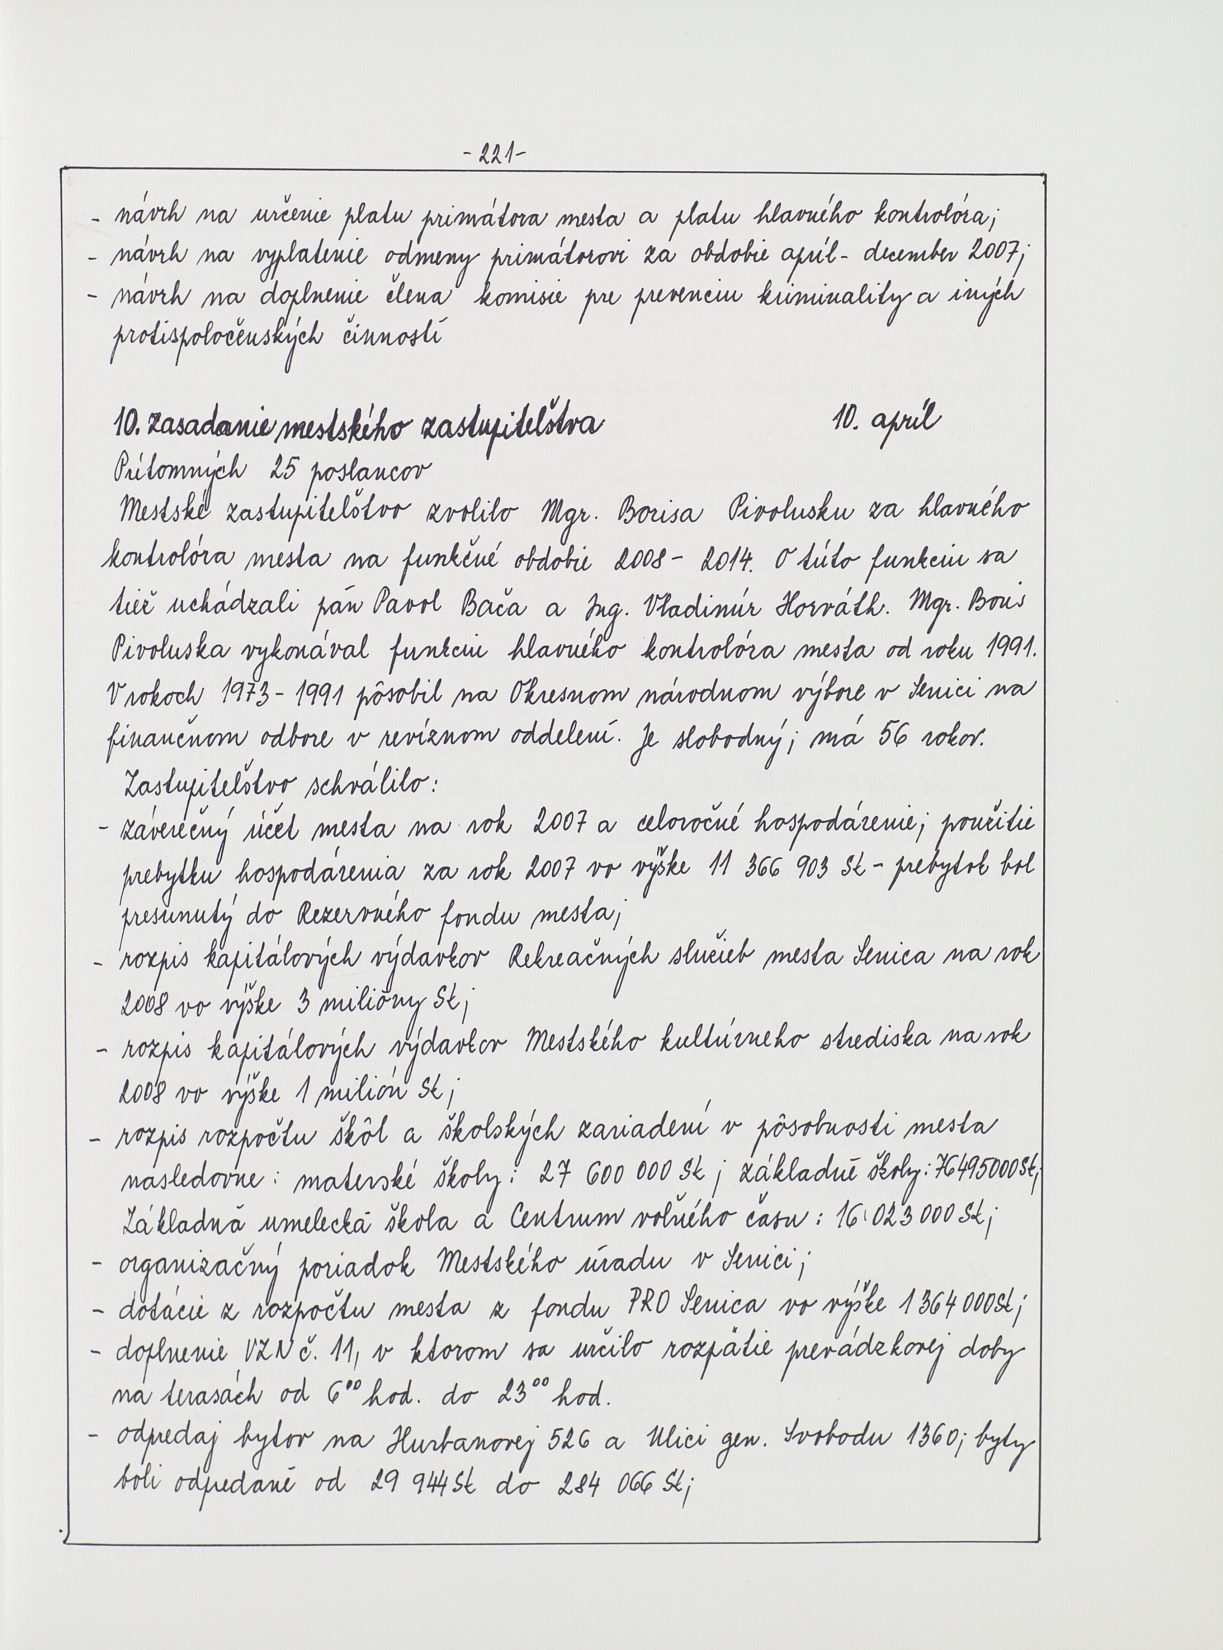 -221-
- návrh na určenie platu primátora mesta a platu hlavného kontrolóra;
- návrh na vyplatenie odmeny primátorovi za obdobie apríl - december 2007;
- návrh na doplnenie člena komisie pre prevenciu kriminality a iných
protispoločenských činností
10. zasadanie mestského zastupiteľstva 10. apríl
Prítomných 25 poslancov
Mestské zastupiteľstvo zvolilo Mgr. Borisa Pivolusku za hlavného
kontrolóra mesta na funkčné obdobie 2008 - 2014. O túto funkciu sa
tiež uchádzali pán Pavol Bača a Ing. Vladimír Horváth. Mgr. Boris
Pivoluska vykonával funkciu hlavného kontrolóra mesta od roku 1991.
V rokoch 1973 - 1991 pôsobil na Okresnom národnom výbore v Senici na
finančnom odbore v revíznom oddelení. Je slobodný; má 56 rokov.
Zastupiteľstvo schválilo:
- záverečný účet mesta na rok 2007 a celoročné hospodárenie; použitie
prebytku hospodárenia za rok 2007 vo výške 11 366 903 Sk - prebytok bol
presunutý do Rezervného fondu mesta;
- rozpis kapitálových výdavkov Rekreačných služieb mesta Senica na rok
2008 vo výške 3 milióny Sk;
- rozpis kapitálových výdavkov Mestského kultúrneho strediska na rok
2008 vo výške 1 milión Sk;
- rozpis rozpočtu škôl a školských zariadení v pôsobnosti mesta
nasledovne: materské školy: 27 600 000 Sk; základné školy: 76495000Sk;
Základná umelecká škola a Centrum voľného času: 16 023 000 Sk;
- organizačný poriadok Mestského úradu v Senici;
- dotácie z rozpočtu mesta z fondu PRO Senica vo výške 1 364 000Sk;
- doplnenie VZN č. 11, v ktorom sa určilo rozpätie prevádzkovej doby
na terasách od 6⁰⁰ hod. do 23⁰⁰ hod.
- odpredaj bytov na Hurbanovej 526 a Ulici gen. Svobodu 1360; byty
boli odpredané od 29 944 Sk do 284 066 Sk;